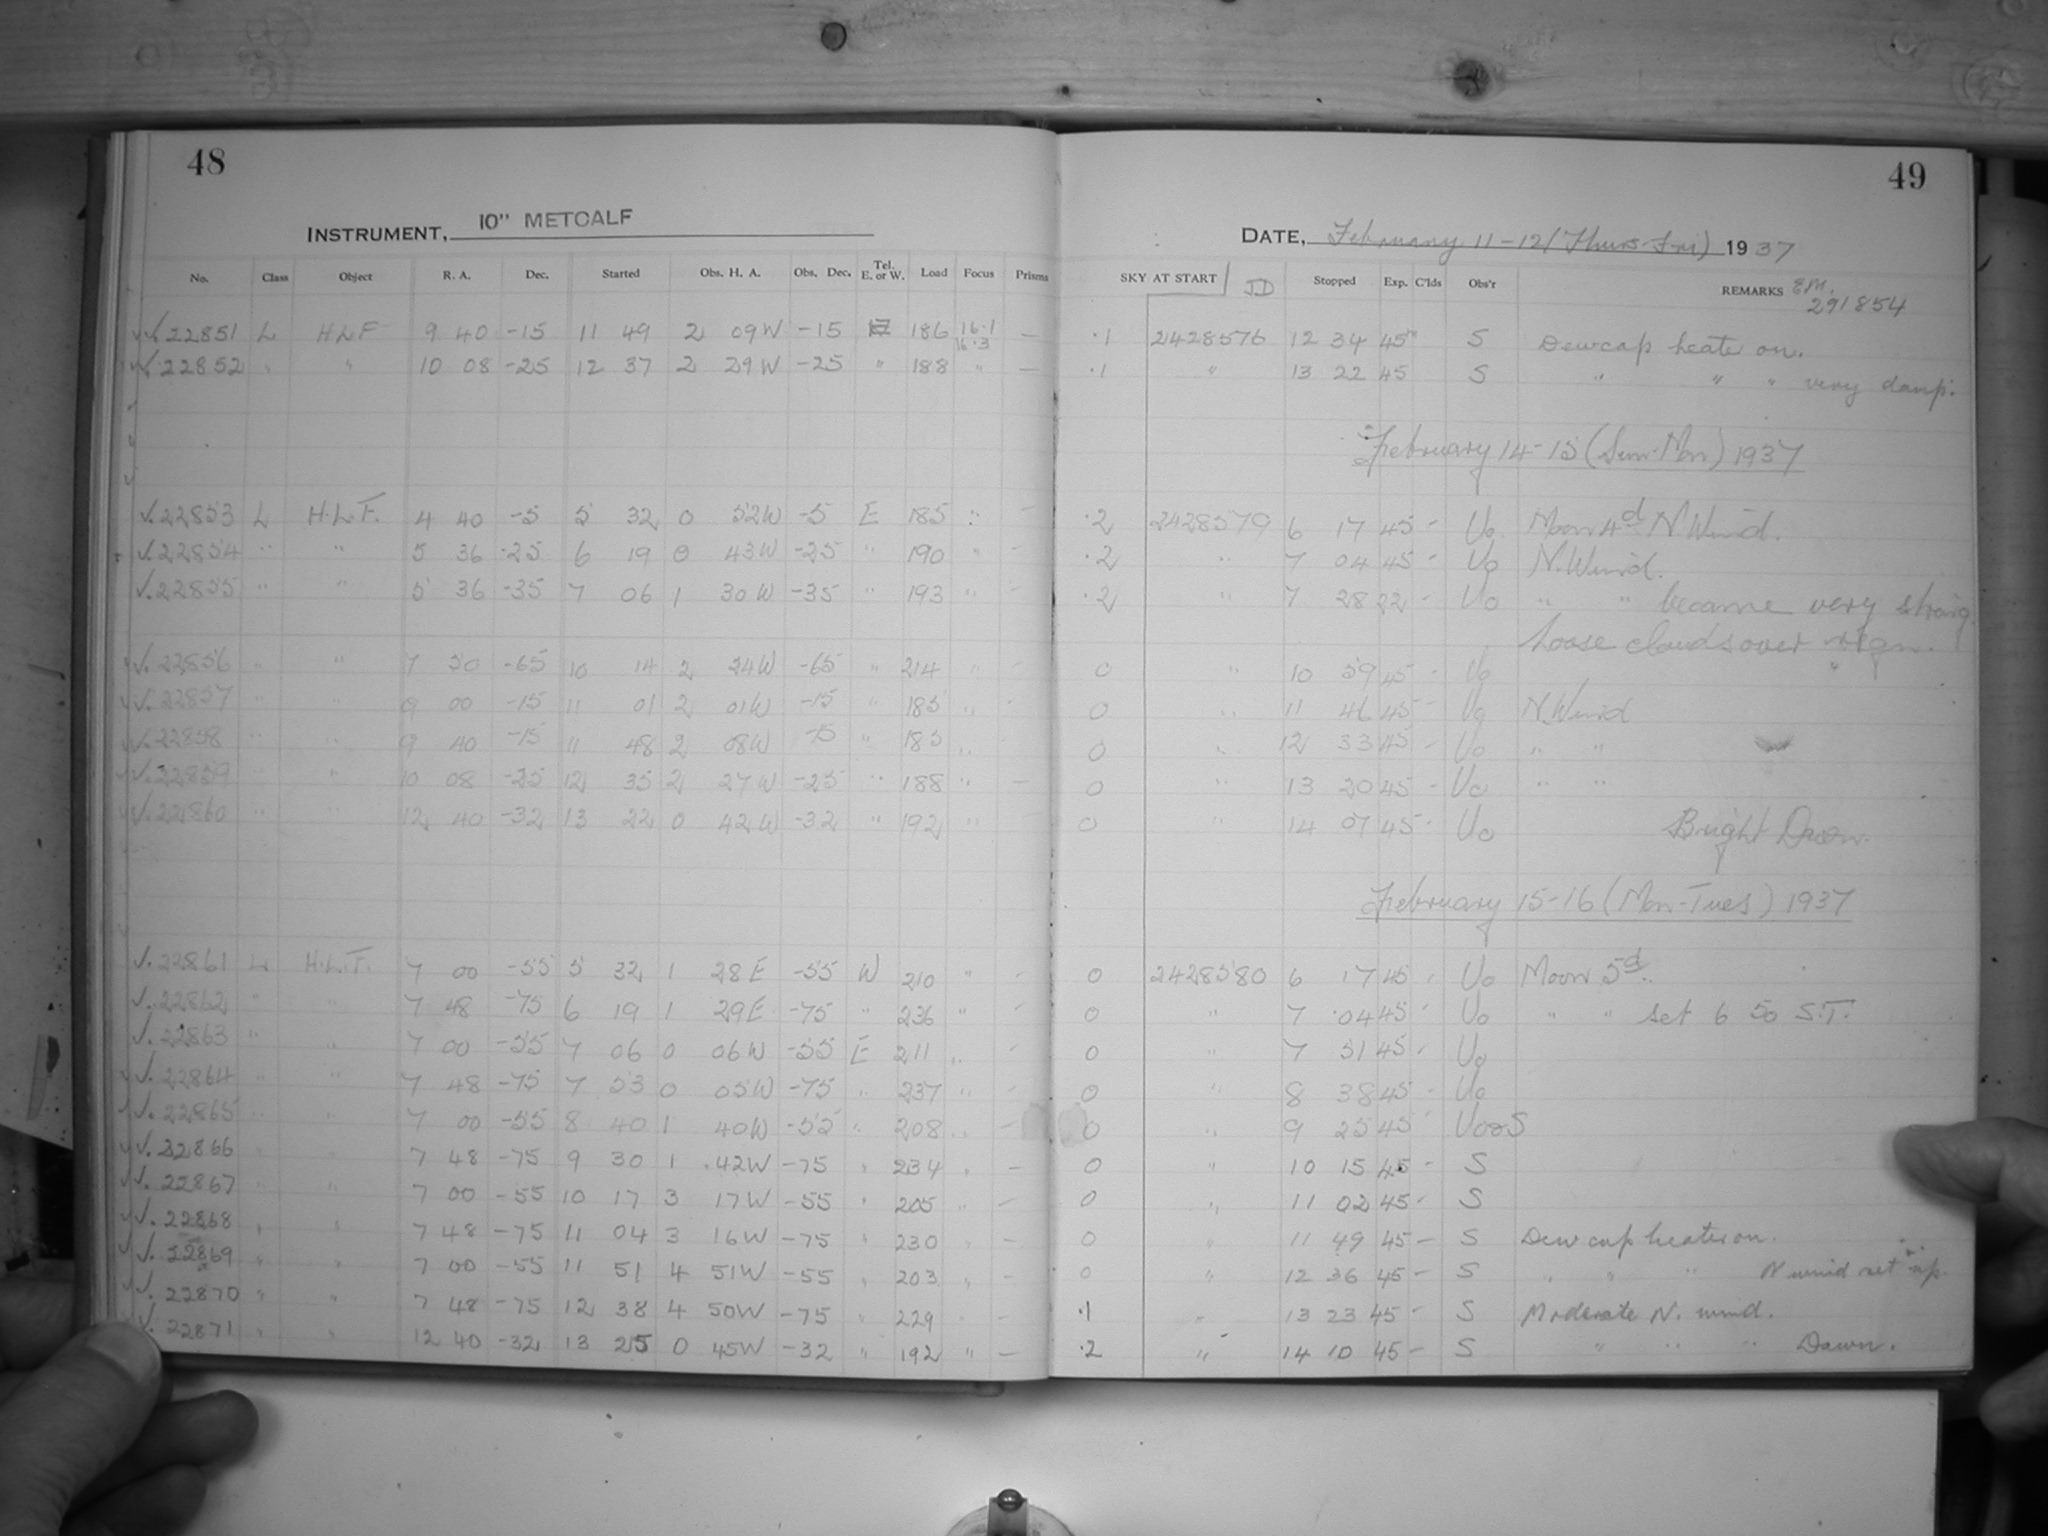 48
INSTRUMENT, 10" METCALF
No. Class Object R. A. Dec. Started Obs. H. A. Obs. Dec. Tel. E. or W. Load Focus Prisms
√√ 22851 L H.L.F 9 40 -15 11 49 2 09W -15 186 16.1 16.3 —
√√ 22852 " " 10 08 -25 12 37 2 29W -25 " 188 " —
√. 22853 L H.L.F. 4 40 -5 5 32 0 52W -5 E 185 " -
√. 22854 " " 5 36 -25 6 19 0 43W -25 " 190 " -
√. 22855 " " 5 36 -35 7 06 1 30W -35 " 193 " -
√. 22856 " " 7 50 -65 10 14 2 24W -65 " 214 " -
√. 22857 " " 9 00 -15 11 01 2 01W -15 " 185 " -
√. 22858 " " 9 40 -15 11 48 2 08W -15 " 185 "
√. 22859 " " 10 08 -25 12 35 2 27W -25 " 188 " -
√. 22860 " " 12 40 -32 13 22 0 42W -32 " 192 " -
√. 22861 L H.L.F. 7 00 -55 5 32 1 28E -55 W 210 " -
√. 22862 " " 7 48 -75 6 19 1 29E -75 " 236 " -
√. 22863 " " 7 00 -55 7 06 0 06W -55 E 211 " -
√. 22864 " " 7 48 -75 7 53 0 05W -75 " 237 " -
√. 22865 " " 7 00 -55 8 40 1 40W -55 " 208 " -
√. 22866 " " 7 48 -75 9 30 1 42W -75 " 234 " -
√. 22867 " " 7 00 -55 10 17 3 17W -55 " 205 " -
√. 22868 " " 7 48 -75 11 04 3 16W -75 " 230 " -
√. 22869 " " 7 00 -55 11 51 4 51W -55 " 203 " -
√. 22870 " " 7 48 -75 12 38 4 50W -75 " 229 " -
√. 22871 " " 12 40 -32 13 25 0 45W -32 " 192 " —
49
DATE, February 11-12 (Thurs-Fri) 1937
SKY AT START JD Stopped Exp. C'lds Obs'r REMARKS E.M. 291854
.1 2428576 12 34 45m S Dewcap heater on.
.1 " 13 22 45 S " " " very damp.
February 14-15 (Sun-Mon) 1937
.2 2428579 6 17 45 - Uo Moon 4d N.Wind.
.2 " 7 04 45 - Uo N.Wind.
.2 " 7 28 22 - Uo " " became very strong
loose clouds over region.
0 " 10 59 45 - Uo "
0 " 11 46 45 - Uo N.Wind
0 " 12 33 45 - Uo " "
0 " 13 20 45 - Uo " "
0 " 14 07 45 - Uo Bright Dawn.
February 15-16 (Mon-Tues) 1937
0 2428580 6 17 45 - Uo Moon 5d.
0 " 7 04 45 - Uo " " set 6 50 S.T.
0 " 7 51 45 - Uo
0 " 8 38 45 - Uo
0 " 9 25 45 Uo&S
0 " 10 15 45 - S
0 " 11 02 45 - S
0 " 11 49 45 - S Dew cap heater on.
0 " 12 36 45 - S " " " N wind set up.
.1 " 13 23 45 - S Moderate N. wind.
.2 " 14 10 45 - S " " " Dawn.